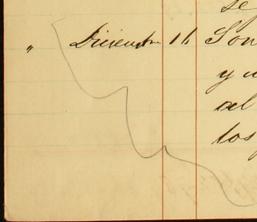 se
" Diciembre 16 Son
y u
al
los